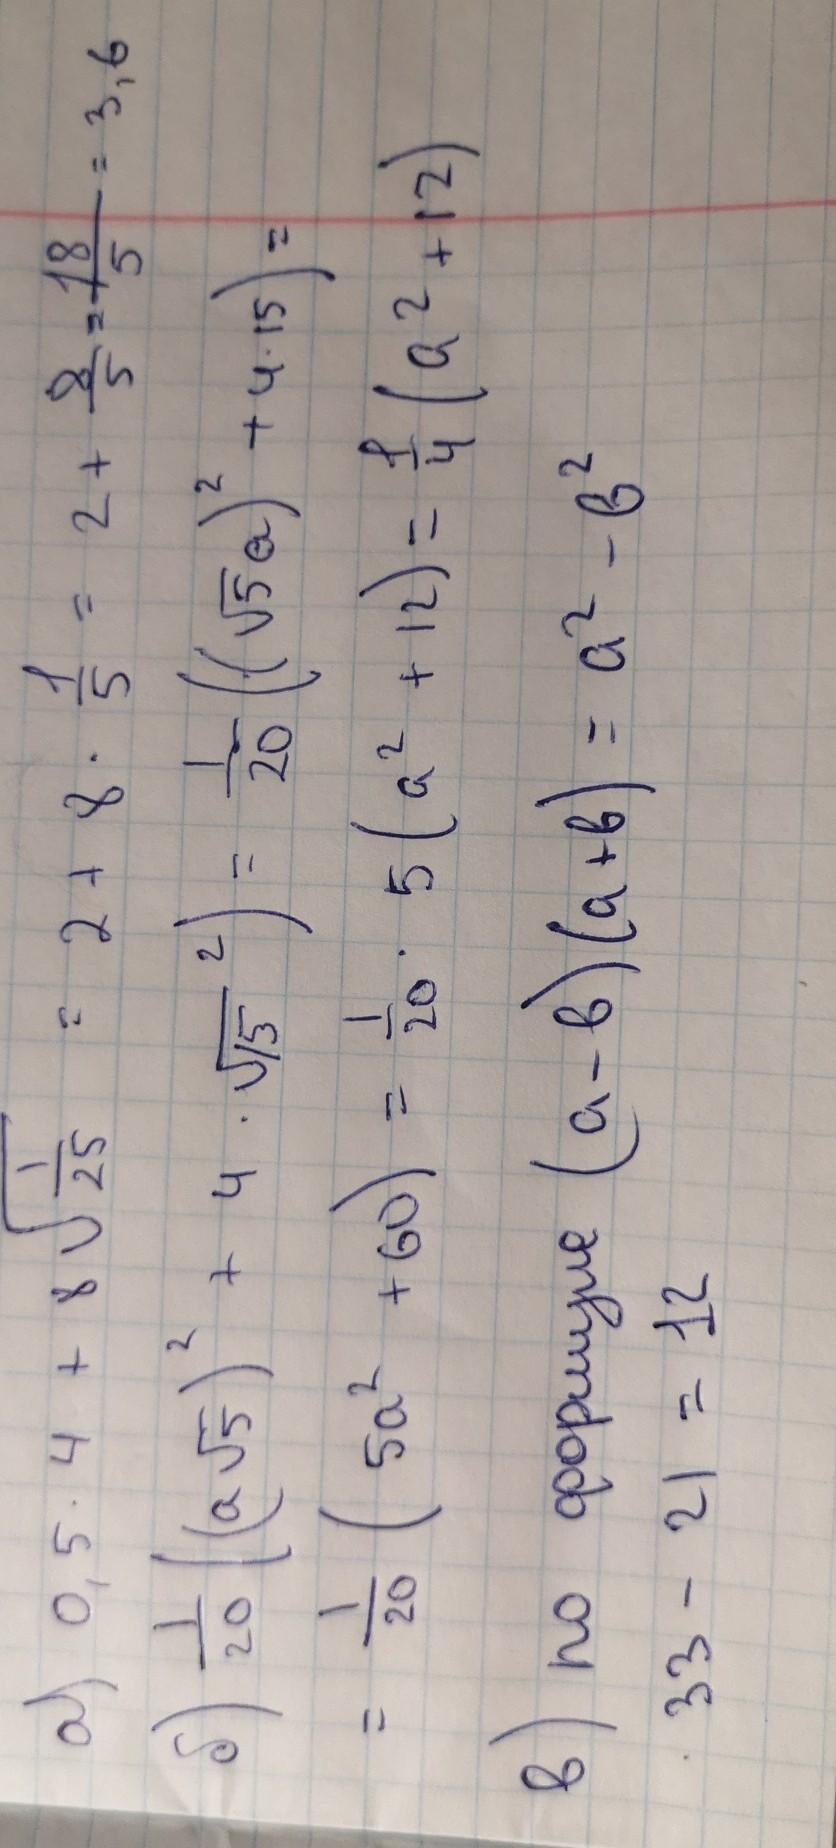 а) 0,5 · 4 + 8√(1/25) = 2 + 8 · 1/5 = 2 + 8/5 = 18/5 = 3,6
б) 1/20 ((a√5)² + 4 · √15²) = 1/20 ((√5a)² + 4·15) =
= 1/20 (5a² + 60) = 1/20 · 5(a² + 12) = 1/4 (a² + 12)
в) по формуле (a - в)(a + в) = a² - в²
33 - 21 = 12